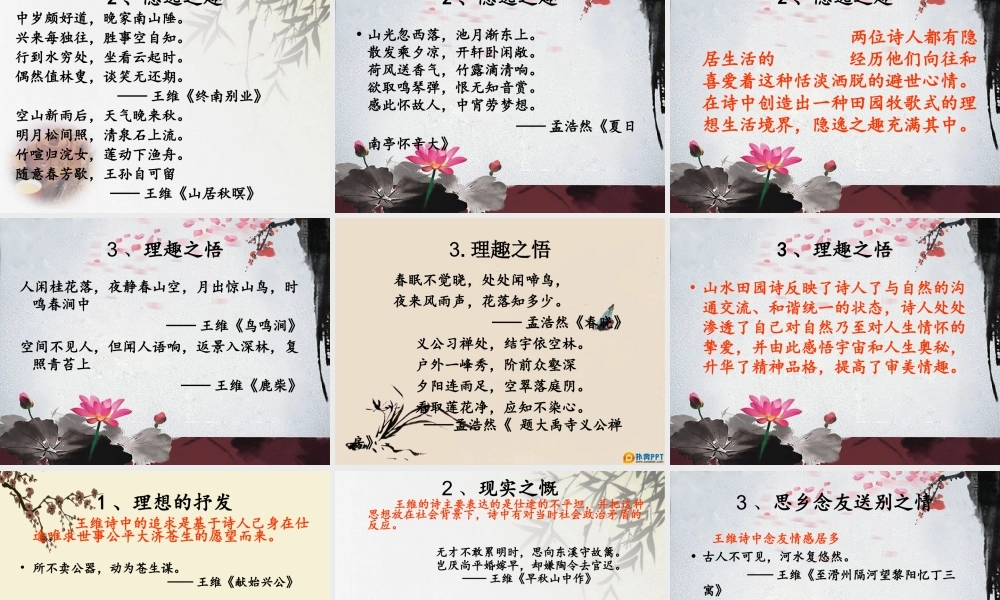 2、隐逸之趣
中岁颇好道，晚家南山陲。
兴来每独往，胜事空自知。
行到水穷处，坐看云起时。
偶然值林叟，谈笑无还期。
—— 王维《终南别业》
空山新雨后，天气晚来秋。
明月松间照，清泉石上流。
竹喧归浣女，莲动下渔舟。
随意春芳歇，王孙自可留
—— 王维《山居秋暝》
2、隐逸之趣
• 山光忽西落，池月渐东上。
散发乘夕凉，开轩卧闲敞。
荷风送香气，竹露滴清响。
欲取鸣琴弹，恨无知音赏。
感此怀故人，中宵劳梦想。
—— 孟浩然《夏日
南亭怀辛大》
2、隐逸之趣
两位诗人都有隐
居生活的 经历他们向往和
喜爱着这种恬淡洒脱的避世心情。
在诗中创造出一种田园牧歌式的理
想生活境界，隐逸之趣充满其中。
3、理趣之悟
人闲桂花落，夜静春山空，月出惊山鸟，时
鸣春涧中
—— 王维《鸟鸣涧》
空间不见人，但闻人语响，返景入深林，复
照青苔上
—— 王维《鹿柴》
3.理趣之悟
春眠不觉晓，处处闻啼鸟，
夜来风雨声，花落知多少。
—— 孟浩然《春晓》
义公习禅处，结宇依空林。
户外一峰秀，阶前众壑深
夕阳连雨足，空翠落庭阴。
看取莲花净，应知不染心。
——孟浩然《 题大禹寺义公禅
房》
扑奔PPT
3、理趣之悟
• 山水田园诗反映了诗人了与自然的沟
通交流、和谐统一的状态，诗人处处
渗透了自己对自然乃至对人生情怀的
挚爱，并由此感悟宇宙和人生奥秘，
升华了精神品格，提高了审美情趣。
1、理想的抒发
王维诗中的追求是基于诗人己身在仕
途难求世事公平大济苍生的愿望而来。
• 所不卖公器，动为苍生谋。
—— 王维《献始兴公》
2、现实之慨
王维的诗主要表达的是仕途的不平坦，并把这种
思想放在社会背景下，诗中有对当时社会政治矛盾的
反应。
无才不敢累明时，思向东溪守故篱。
岂厌尚平婚嫁早，却嫌陶令去官迟。
—— 王维《早秋山中作》
3、思乡念友送别之情
王维诗中念友情感居多
• 古人不可见，河水复悠然。
—— 王维《至滑州隔河望黎阳忆丁三
寓》